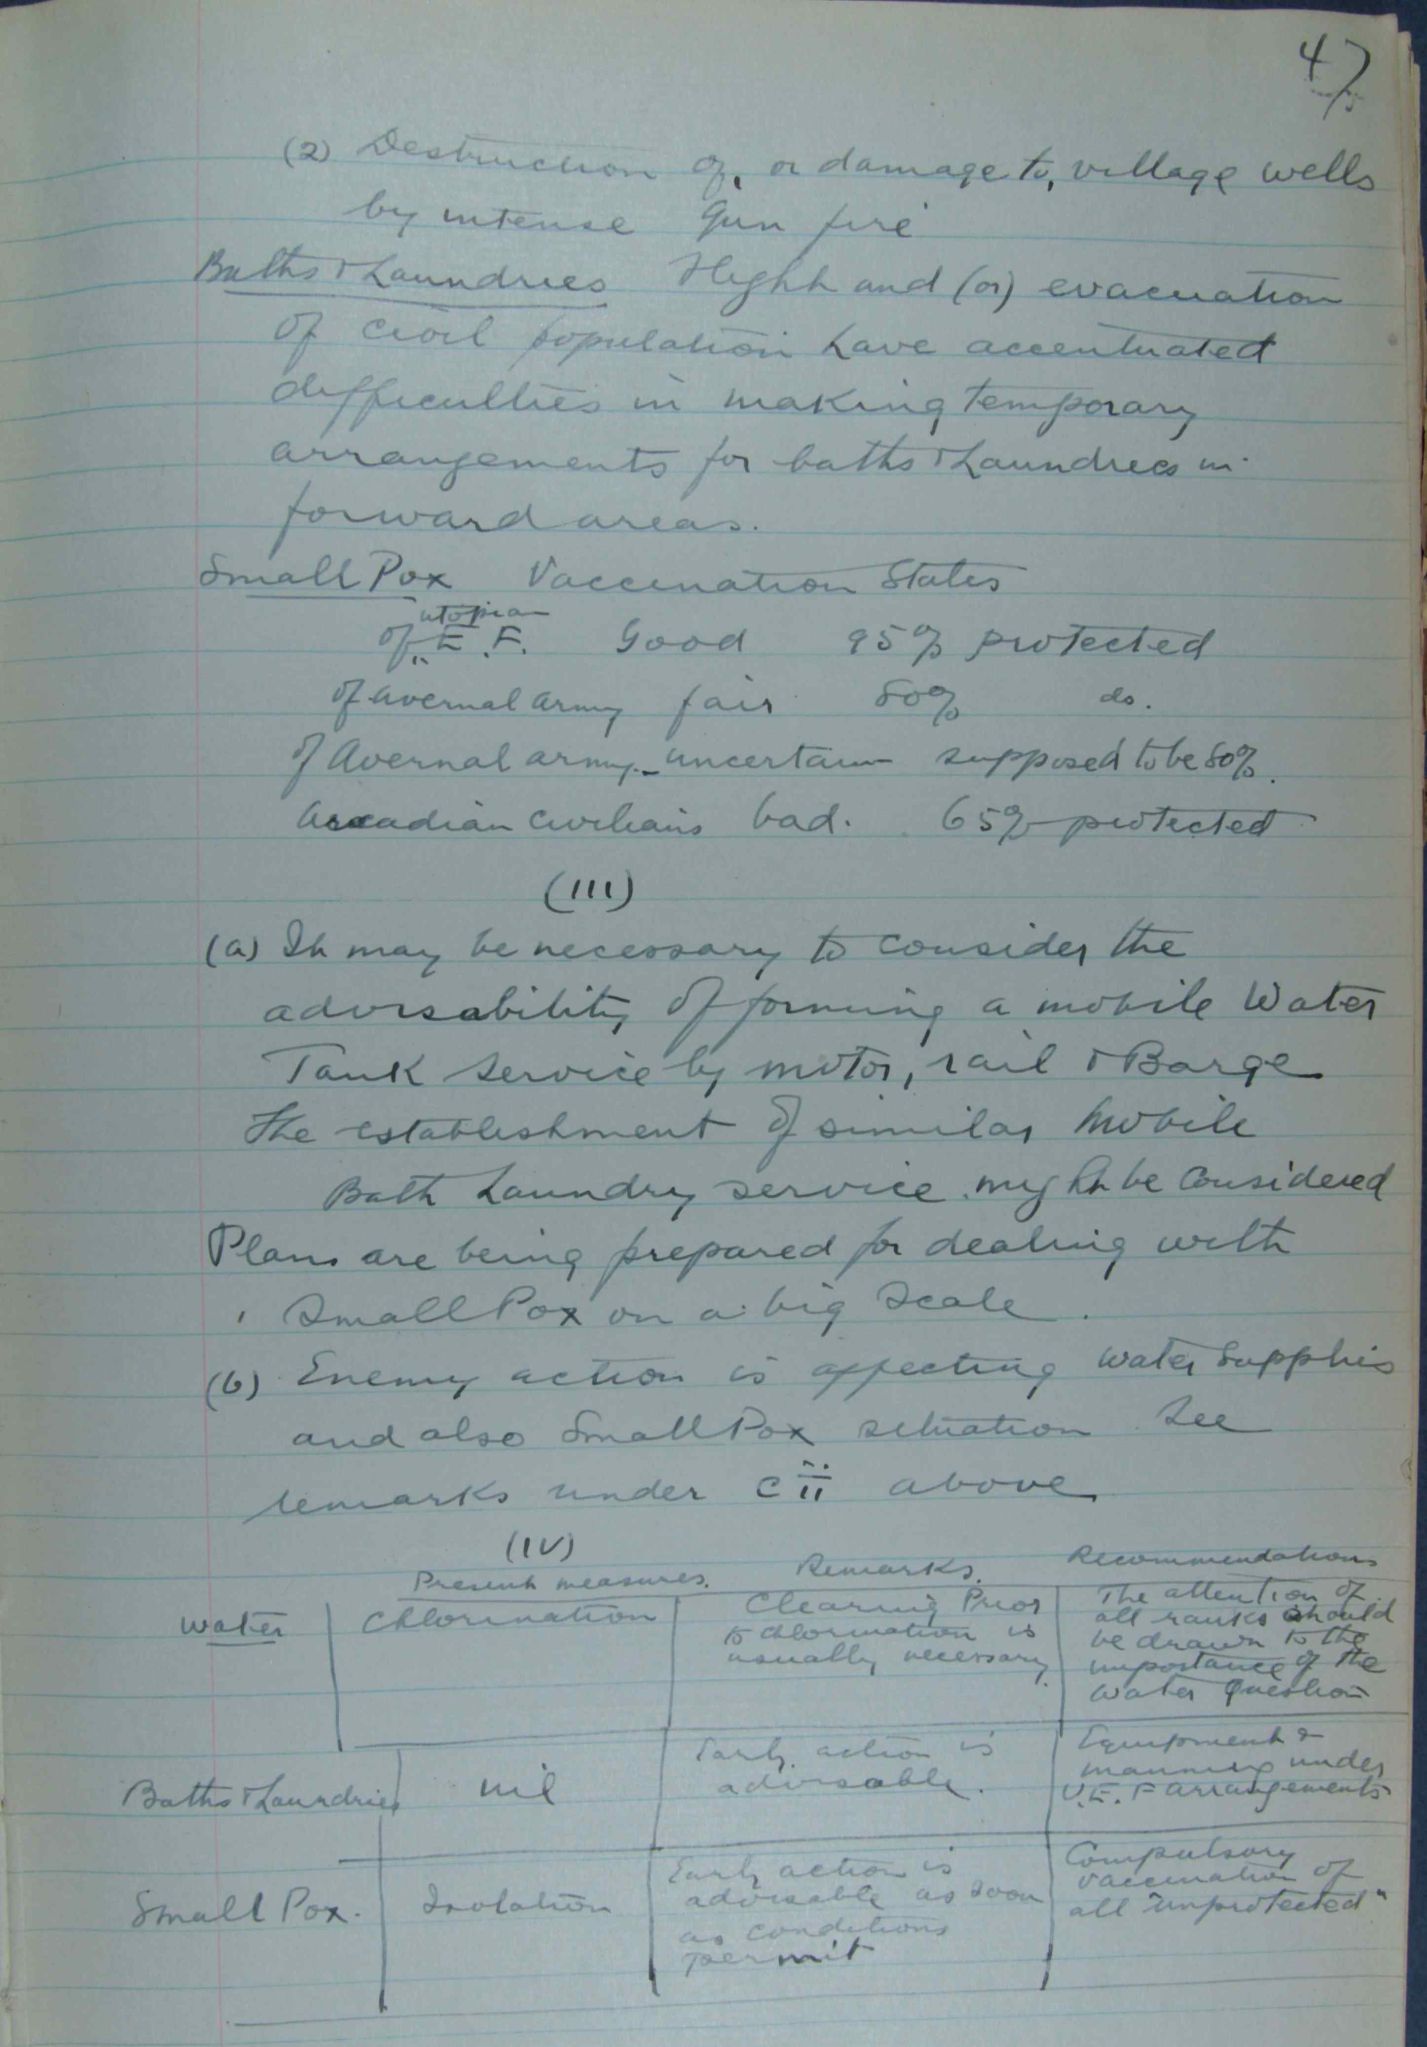 47
(2) Destruction of, or damage to, village wells
by intense Gun fire
Baths & Laundries Flight and (or) evacuation
of civil population have accentuated
difficulties in making temporary
arrangements for baths & Laundries in
forward areas.
Small Pox Vaccination States
utopian
of E. F. Good 95% protected
of avernal army fair 80% do.
of Avernal army - uncertain supposed to be 80%.
Arcadian civilians bad. 65% protected
(III)
(a) It may be necessary to consider the
advisability of forming a mobile Water
Tank Service by motor, rail & Barge
The establishment of similar mobile
Bath Laundry service might be considered
Plans are being prepared for dealing with
Small Pox on a big scale.
(b) Enemy action is affecting water supplies
and also Small Pox situation See
remarks under C ii above
(IV)
Present measures. Remarks. Recommendations
Water Chlorination Clearing Prior
to chlorination is
usually necessary. The attention of
all ranks should
be drawn to the
importance of the
water question
Baths & Laundries nil Early action is
advisable. Equipment &
manning under
U.E.F arrangements
Small Pox. Isolation Early action is
advisable as soon
as conditions
permit Compulsory
vaccination of
all "unprotected"